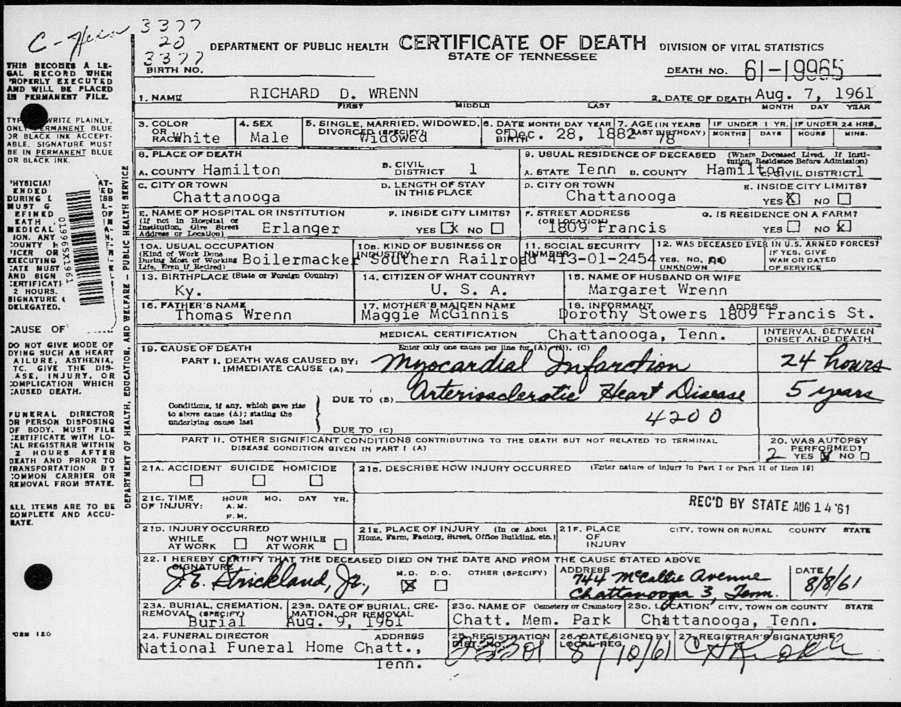 C-Hein
3377
20
3377
BIRTH NO.
DEPARTMENT OF PUBLIC HEALTH CERTIFICATE OF DEATH DIVISION OF VITAL STATISTICS
STATE OF TENNESSEE
DEATH NO. 61-19965
THIS BECOMES A LE-
GAL RECORD WHEN
PROPERLY EXECUTED
AND WILL BE PLACED
IN PERMANENT FILE.
WRITE PLAINLY.
PERMANENT BLUE
OR BLACK INK ACCEPT-
ABLE. SIGNATURE MUST
BE IN PERMANENT BLUE
OR BLACK INK.
019965X1961
CAUSE OF
DO NOT GIVE MODE OF
DYING SUCH AS HEART
FAILURE, ASTHENIA,
ETC. GIVE THE DIS-
EASE, INJURY, OR
COMPLICATION WHICH
CAUSED DEATH.
FUNERAL DIRECTOR
OR PERSON DISPOSING
OF BODY, MUST FILE
CERTIFICATE WITH LO-
CAL REGISTRAR WITHIN
72 HOURS AFTER
DEATH AND PRIOR TO
TRANSPORTATION BY
COMMON CARRIER OR
REMOVAL FROM STATE.
ALL ITEMS ARE TO BE
COMPLETE AND ACCU-
RATE.
DEPARTMENT OF HEALTH, EDUCATION, AND WELFARE - PUBLIC HEALTH SERVICE
1. NAME RICHARD D. WRENN 2. DATE OF DEATH Aug. 7, 1961
FIRST MIDDLE LAST MONTH DAY YEAR
3. COLOR OR RACE White 4. SEX Male 5. SINGLE, MARRIED, WIDOWED, DIVORCED (SPECIFY) Widowed 6. DATE OF BIRTH MONTH DAY YEAR Dec. 28, 1882 7. AGE (IN YEARS LAST BIRTHDAY) 78 IF UNDER 1 YR. MONTHS DAYS IF UNDER 24 HRS. HOURS MINS.
8. PLACE OF DEATH 9. USUAL RESIDENCE OF DECEASED (Where Deceased Lived. If Insti-
tution, Residence Before Admission)
A. COUNTY Hamilton B. CIVIL DISTRICT 1 A. STATE Tenn B. COUNTY Hamilton C. CIVIL DISTRICT 1
C. CITY OR TOWN Chattanooga D. LENGTH OF STAY IN THIS PLACE D. CITY OR TOWN Chattanooga E. INSIDE CITY LIMITS? YES X NO
E. NAME OF HOSPITAL OR INSTITUTION (If not in Hospital or Institution, Give Street Address or Location) Erlanger F. INSIDE CITY LIMITS? YES X NO F. STREET ADDRESS (OR LOCATION) 1809 Francis G. IS RESIDENCE ON A FARM? YES NO X
10A. USUAL OCCUPATION (Kind of Work Done During Most of Working Life, Even if Retired) Boilermacker 10B. KIND OF BUSINESS OR INDUSTRY Southern Railroad 11. SOCIAL SECURITY NUMBER 413-01-2454 12. WAS DECEASED EVER IN U.S. ARMED FORCES? YES, NO, UNKNOWN no IF YES, GIVE WAR OR DATES OF SERVICE
13. BIRTHPLACE (State or Foreign Country) Ky. 14. CITIZEN OF WHAT COUNTRY? U. S. A. 15. NAME OF HUSBAND OR WIFE Margaret Wrenn
16. FATHER'S NAME Thomas Wrenn 17. MOTHER'S MAIDEN NAME Maggie McGinnis 18. INFORMANT ADDRESS Dorothy Stowers 1809 Francis St.
MEDICAL CERTIFICATION Chattanooga, Tenn. INTERVAL BETWEEN ONSET AND DEATH
19. CAUSE OF DEATH Enter only one cause per line for (A), (B), (C)
PART I. DEATH WAS CAUSED BY:
IMMEDIATE CAUSE (A) Myocardial Infarction 24 hours
DUE TO (B) Arteriosclerotic Heart Disease 5 years
Conditions, if any, which gave rise to above cause (A); stating the underlying cause last 4200
DUE TO (C)
PART II. OTHER SIGNIFICANT CONDITIONS CONTRIBUTING TO THE DEATH BUT NOT RELATED TO TERMINAL
DISEASE CONDITION GIVEN IN PART I (A)
20. WAS AUTOPSY PERFORMED? 2 YES NO
21A. ACCIDENT SUICIDE HOMICIDE 21B. DESCRIBE HOW INJURY OCCURRED (Enter nature of injury in Part I or Part II of Item 18)
21C. TIME OF INJURY: HOUR MO. DAY YR. A.M. P.M.
REC'D BY STATE AUG 14 '61
21D. INJURY OCCURRED WHILE AT WORK NOT WHILE AT WORK 21E. PLACE OF INJURY (In or About Home, Farm, Factory, Street, Office Building, etc.) 21F. PLACE OF INJURY CITY, TOWN OR RURAL COUNTY STATE
22. I HEREBY CERTIFY THAT THE DECEASED DIED ON THE DATE AND FROM THE CAUSE STATED ABOVE
SIGNATURE J.E. Strickland, Jr., M.D. X D.O. OTHER (SPECIFY) ADDRESS 744 McCallie Avenue Chattanooga 3, Tenn. DATE 8/8/61
23A. BURIAL, CREMATION, REMOVAL (SPECIFY) Burial 23B. DATE OF BURIAL, CRE-MATION, OR REMOVAL Aug. 9, 1961 23C. NAME OF Cemetery or Crematory Chatt. Mem. Park 23D. LOCATION CITY, TOWN OR COUNTY STATE Chattanooga, Tenn.
24. FUNERAL DIRECTOR ADDRESS National Funeral Home Chatt., Tenn. 25. REGISTRATION DIST. NO. 33301 26. DATE SIGNED BY LOCAL REG. 8/10/61 27. REGISTRAR'S SIGNATURE